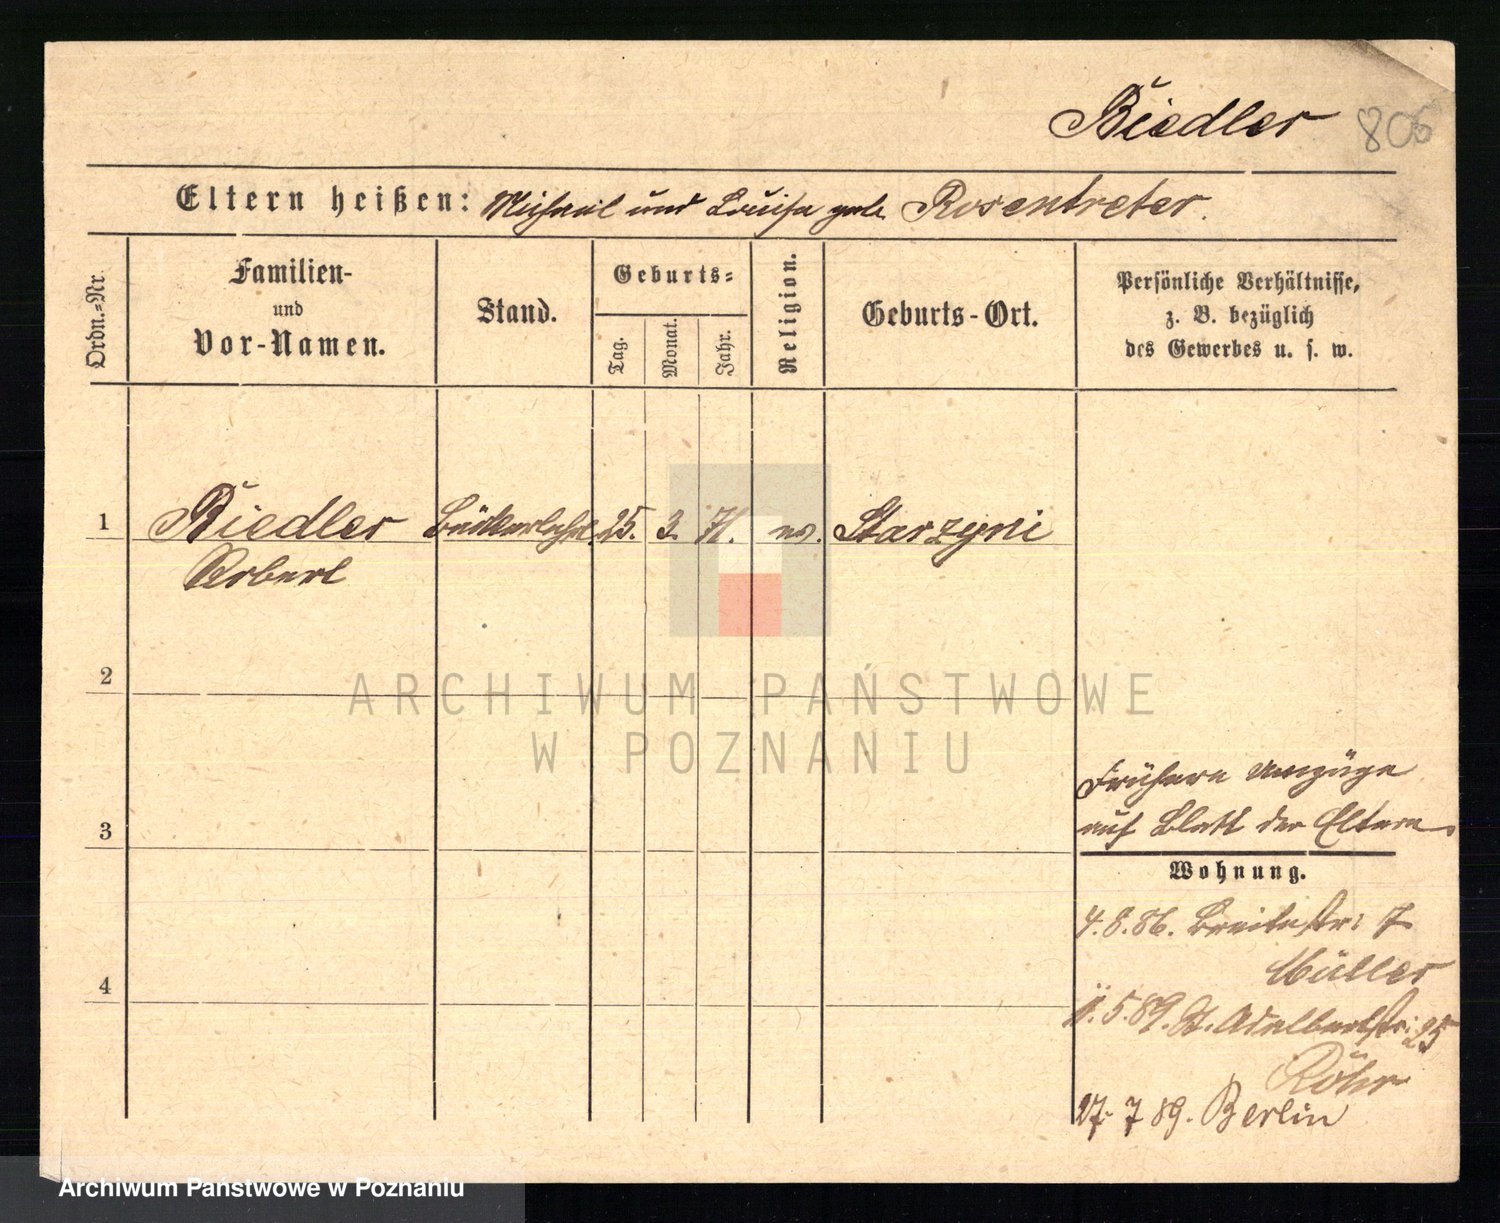 Riedler 806
Eltern heißen: Michael und Louise geb. Rosentreter.
Ordn.-Nr.
Familien-
und
Vor-Namen.
Stand.
Geburts-
Tag.
Monat.
Jahr.
Religion.
Geburts-Ort.
Persönliche Verhältnisse,
z. B. bezüglich
des Gewerbes u. s. w.
1 Riedler Bäckerlehrl. 25. 3. 71. ev. Starzyni
Robert
2
ARCHIWUM PAŃSTWOWE
W POZNANIU
Frühere Umzüge
3 auf Blatt der Eltern.
Wohnung.
4.8.86. Breitestr: 7
Müller
4
11.5.89. St. Adalbertstr: 25
Röhr
27. 7 89. Berlin
Archiwum Państwowe w Poznaniu